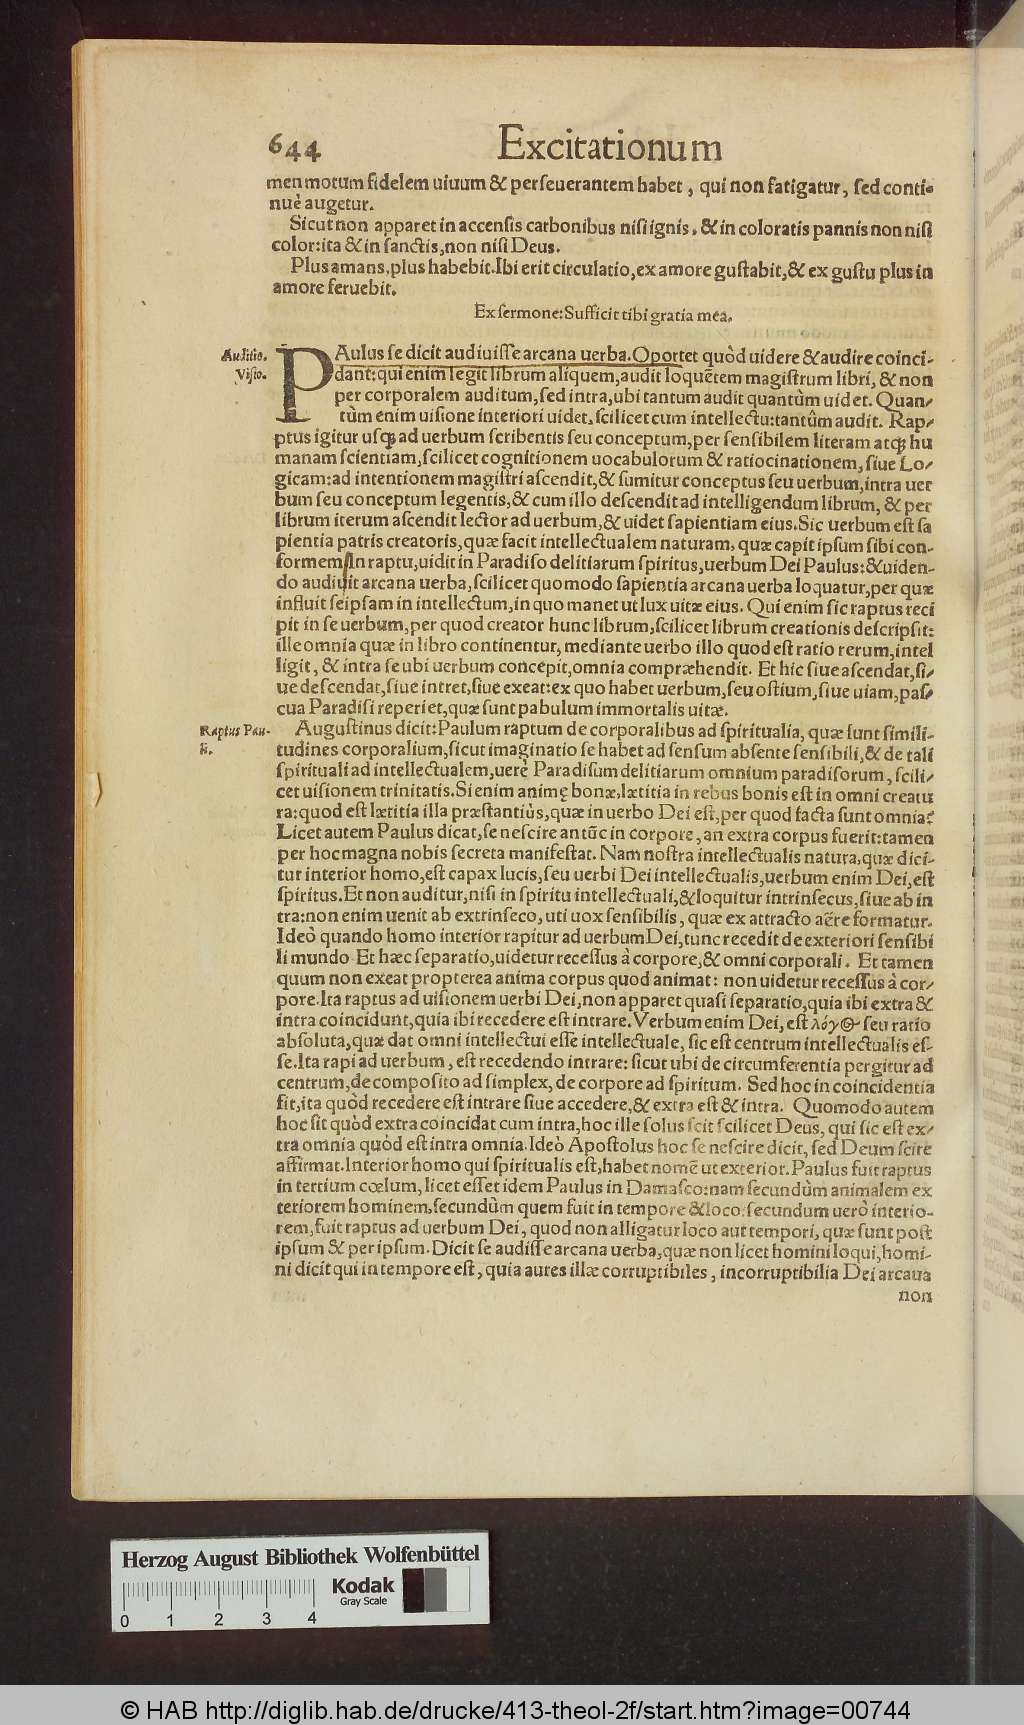 644 Excitationum
men motum fidelem uiuum & perseuerantem habet, qui non fatigatur, sed conti-
nuè augetur.
Sicut non apparet in accensis carbonibus nisi ignis, & in coloratis pannis non nisi
color: ita & in sanctis, non nisi Deus.
Plus amans, plus habebit. Ibi erit circulatio, ex amore gustabit, & ex gustu plus in
amore feruebit.
Ex sermone: Sufficit tibi gratia mea.
Auditio.
Visio.
PAulus se dicit audiuisse arcana uerba. Oportet quòd uidere & audire coinci-
dant: qui enim legit librum aliquem, audit loquẽtem magistrum libri, & non
per corporalem auditum, sed intra, ubi tantum audit quantùm uidet. Quan-
tùm enim uisione interiori uidet, scilicet cum intellectu: tantùm audit. Rap-
ptus igitur usq; ad uerbum scribentis seu conceptum, per sensibilem literam atq; hu
manam scientiam, scilicet cognitionem uocabulorum & ratiocinationem, siue Lo-
gicam: ad intentionem magistri ascendit, & sumitur conceptus seu uerbum, intra uer
bum seu conceptum legentis, & cum illo descendit ad intelligendum librum, & per
librum iterum ascendit lector ad uerbum, & uidet sapientiam eius. Sic uerbum est sa
pientia patris creatoris, quæ facit intellectualem naturam, quæ capit ipsum sibi con-
formem. In raptu, uidit in Paradiso delitiarum spiritus, uerbum Dei Paulus: & uiden-
do audiuit arcana uerba, scilicet quomodo sapientia arcana uerba loquatur, per quæ
influit seipsam in intellectum, in quo manet ut lux uitæ eius. Qui enim sic raptus reci
pit in se uerbum, per quod creator hunc librum, scilicet librum creationis descripsit:
ille omnia quæ in libro continentur, mediante uerbo illo quod est ratio rerum, intel
ligit, & intra se ubi uerbum concepit, omnia compræhendit. Et hic siue ascendat, si-
ue descendat, siue intret, siue exeat: ex quo habet uerbum, seu ostium, siue uiam, pas-
cua Paradisi reperiet, quæ sunt pabulum immortalis uitæ.
Raptus Pau-
li.
Augustinus dicit: Paulum raptum de corporalibus ad spiritualia, quæ sunt simili-
tudines corporalium, sicut imaginatio se habet ad sensum absente sensibili, & de tali
spirituali ad intellectualem, uerè Paradisum delitiarum omnium paradisorum, scili-
cet uisionem trinitatis. Si enim animę bonæ, lætitia in rebus bonis est in omni creatu
ra: quod est lætitia illa præstantiùs, quæ in uerbo Dei est, per quod facta sunt omnia?
Licet autem Paulus dicat, se nescire an tũc in corpore, an extra corpus fuerit: tamen
per hoc magna nobis secreta manifestat. Nam nostra intellectualis natura, quæ dici-
tur interior homo, est capax lucis, seu uerbi Dei intellectualis, uerbum enim Dei, est
spiritus. Et non auditur, nisi in spiritu intellectuali, & loquitur intrinsecus, siue ab in
tra: non enim uenit ab extrinseco, uti uox sensibilis, quæ ex attracto aëre formatur.
Ideò quando homo interior rapitur ad uerbum Dei, tunc recedit de exteriori sensibi
li mundo. Et hæc separatio, uidetur recessus à corpore, & omni corporali. Et tamen
quum non exeat propterea anima corpus quod animat: non uidetur recessus à cor-
pore. Ita raptus ad uisionem uerbi Dei, non apparet quasi separatio, quia ibi extra &
intra coincidunt, quia ibi recedere est intrare. Verbum enim Dei, est λόγος seu ratio
absoluta, quæ dat omni intellectui esse intellectuale, sic est centrum intellectualis es-
se. Ita rapi ad uerbum, est recedendo intrare: sicut ubi de circumferentia pergitur ad
centrum, de composito ad simplex, de corpore ad spiritum. Sed hoc in coincidentia
fit, ita quòd recedere est intrare siue accedere, & extra est & intra. Quomodo autem
hoc sit quòd extra coincidat cum intra, hoc ille solus scit scilicet Deus, qui sic est ex-
tra omnia quòd est intra omnia. Ideò Apostolus hoc se nescire dicit, sed Deum scire
affirmat. Interior homo qui spiritualis est, habet nomẽ ut exterior. Paulus fuit raptus
in tertium cœlum, licet esset idem Paulus in Damasco: nam secundùm animalem ex
teriorem hominem, secundùm quem fuit in tempore & loco: secundum uerò interio-
rem, fuit raptus ad uerbum Dei, quod non alligatur loco aut tempori, quæ sunt post
ipsum & per ipsum. Dicit se audisse arcana uerba, quæ non licet homini loqui, homi-
ni dicit qui in tempore est, quia aures illæ corruptibiles, incorruptibilia Dei arcana
non
Herzog August Bibliothek Wolfenbüttel
Kodak
Gray Scale
0 1 2 3 4
© HAB http://diglib.hab.de/drucke/413-theol-2f/start.htm?image=00744